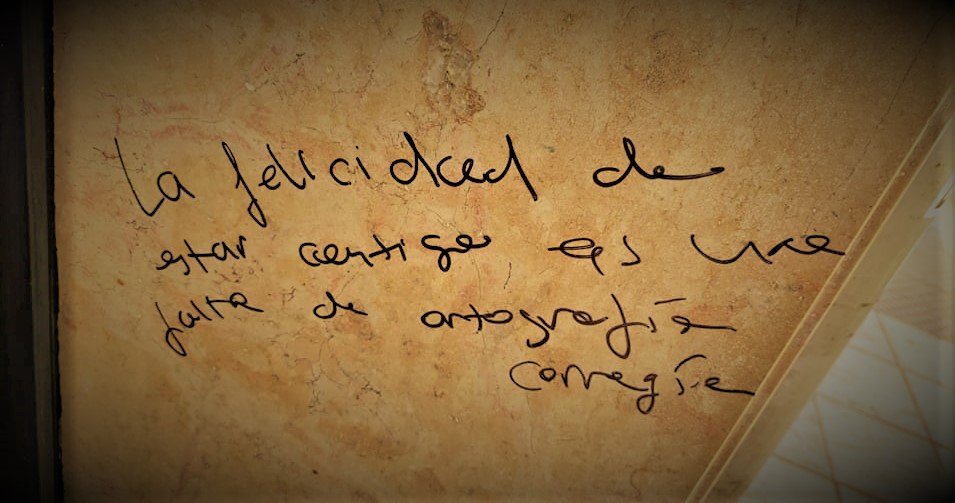 La felicidad de
estar contigo es una
falta de ortografía
corregía